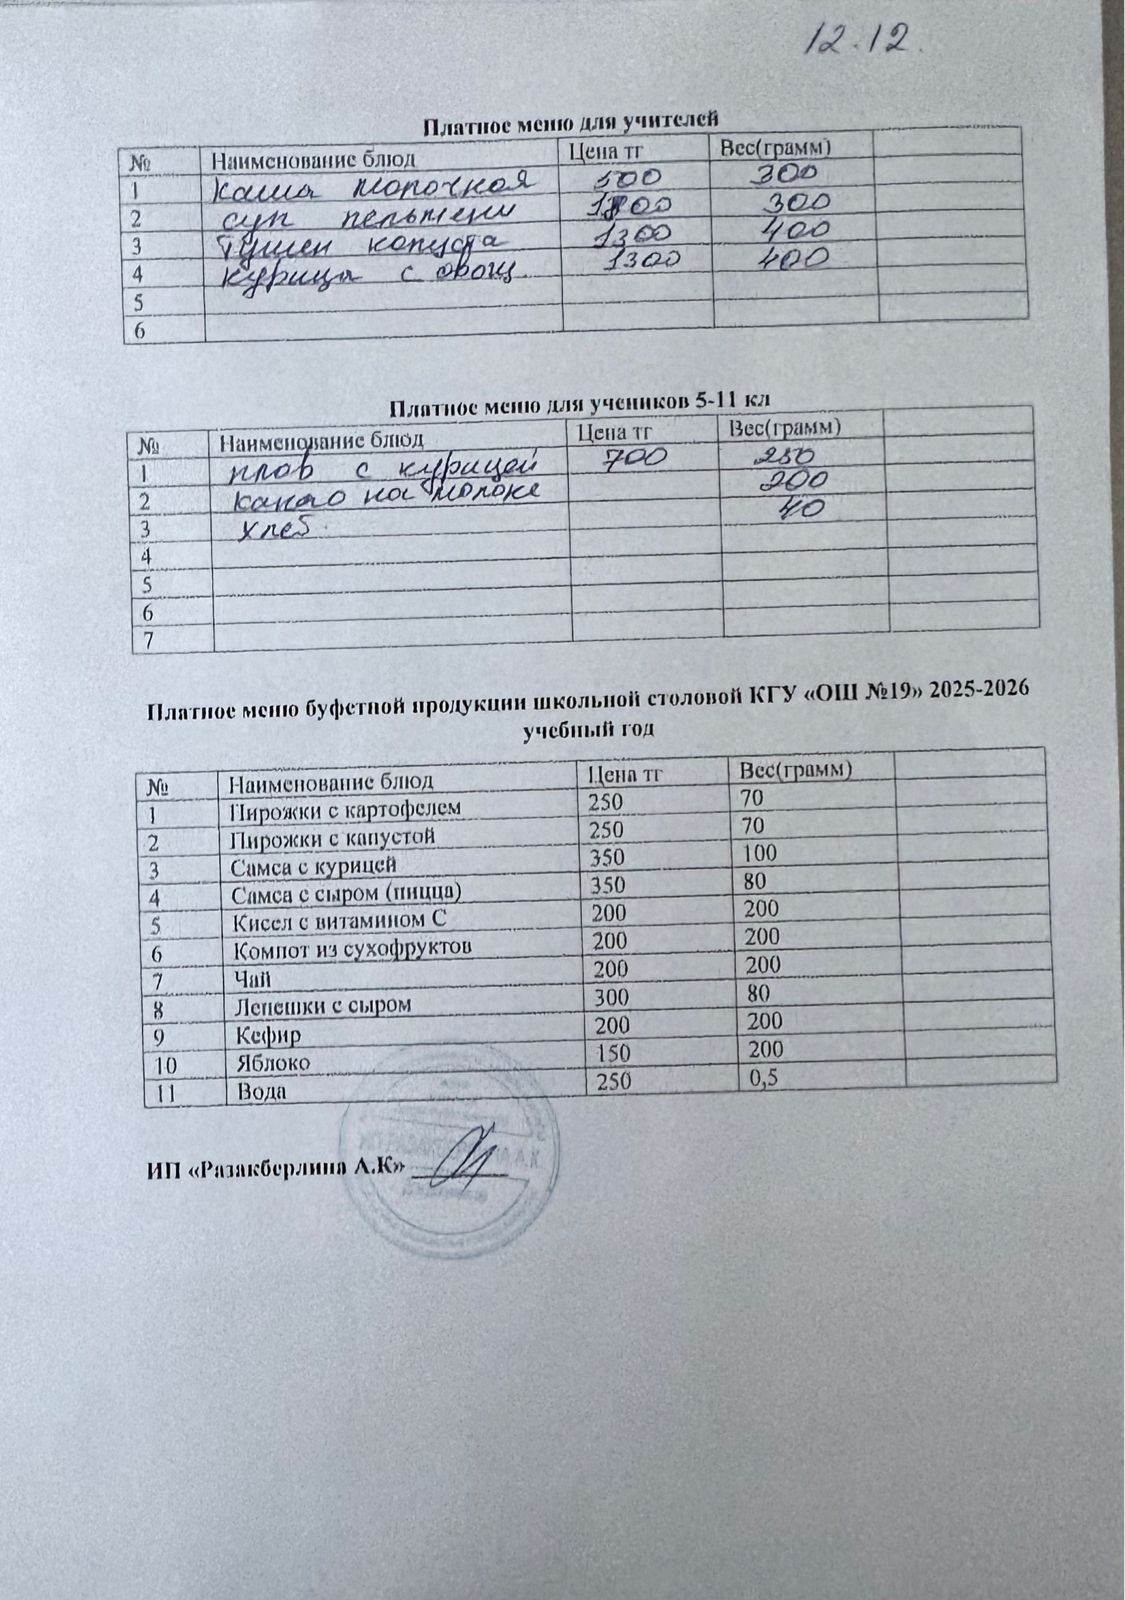 12.12.
Платное меню для учителей
№ Наименование блюд Цена тг Вес(грамм)
1 каша молочная 500 300
2 суп пельмени 300
3 тушен капуста 1300 400
4 курица с овощ. 1300 400
5
6
Платное меню для учеников 5-11 кл
№ Наименование блюд Цена тг Вес(грамм)
1 плов с курицей 700 250
2 какао на молоке 200
3 хлеб. 40
4
5
6
7
Платное меню буфетной продукции школьной столовой КГУ «ОШ №19» 2025-2026
учебный год
№ Наименование блюд Цена тг Вес(грамм)
1 Пирожки с картофелем 250 70
2 Пирожки с капустой 250 70
3 Самса с курицей 350 100
4 Самса с сыром (пицца) 350 80
5 Кисел с витамином С 200 200
6 Компот из сухофруктов 200 200
7 Чай 200 200
8 Лепешки с сыром 300 80
9 Кефир 200 200
10 Яблоко 150 200
11 Вода 250 0,5
ИП «Разакберлина А.К»